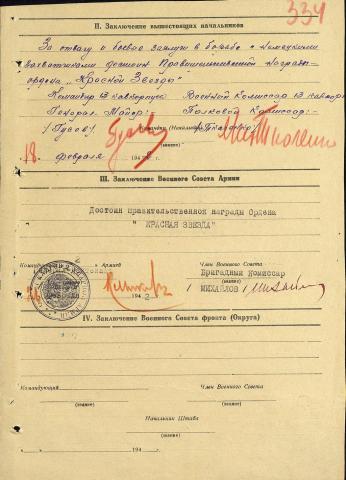 334
II. Заключение вышестоящих начальников
За отвагу и боевые заслуги в борьбе с немецкими
захватчиками достоин Правительственной награды-
ордена „Красной Звезды"
Командир 13 кавкорпуса Военный Комиссар 13 кавкорп
Генерал Майор Полковой Комиссар:-
/Гусев/
(звание)
18. февраля 194 2
III. Заключение Военного Совета Армии
Достоин правительственной награды Ордена
" КРАСНАЯ ЗВЕЗДА"
Командующий 2 Армией Член Военного Совета
Бригадный Комиссар
(звание)
МИХАЙЛОВ
194 2
IV. Заключение Военного Совета фронта (Округа)
Командующий Член Военного Совета
(звание) (звание)
Начальник Штаба
(звание)
" " 194